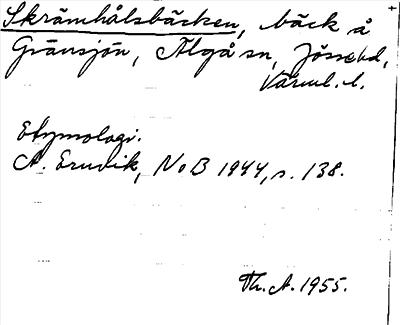 Skrämhålsbäcken, bäck å
Gränsjön, Älgå sn, Jösse hd,
Värml. l.
Etymologi:
A. Ernvik, NoB 1944, s. 138.
Th. A. 1955.